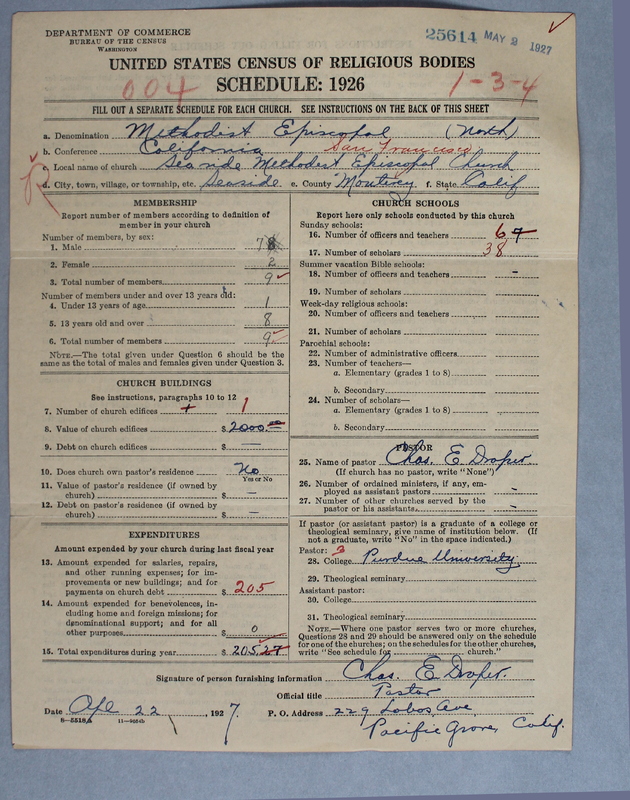 DEPARTMENT OF COMMERCE
BUREAU OF THE CENSUS
WASHINGTON
25614 MAY 2 1927
UNITED STATES CENSUS OF RELIGIOUS BODIES
SCHEDULE: 1926
004
1-3-4
FILL OUT A SEPARATE SCHEDULE FOR EACH CHURCH. SEE INSTRUCTIONS ON THE BACK OF THIS SHEET
a. Denomination Methodist Episcopal (North)
b. Conference California San Francisco
c. Local name of church Seaside Methodist Episcopal Church
d. City, town, village, or township, etc. Seaside e. County Monterey f. State Calif
MEMBERSHIP
Report number of members according to definition of member in your church
Number of members, by sex:
1. Male 7
2. Female 2
3. Total number of members 9
Number of members under and over 13 years old:
4. Under 13 years of age 1
5. 13 years old and over 8
6. Total number of members 9
NOTE.—The total given under Question 6 should be the
same as the total of males and females given under Question 3.
CHURCH BUILDINGS
See instructions, paragraphs 10 to 12
7. Number of church edifices + 1
8. Value of church edifices $ 2000.00
9. Debt on church edifices $ —
10. Does church own pastor's residence No
Yes or No
11. Value of pastor's residence (if owned by
church) $ —
12. Debt on pastor's residence (if owned by
church) $ —
EXPENDITURES
Amount expended by your church during last fiscal year
13. Amount expended for salaries, repairs,
and other running expenses; for im-
provements or new buildings; and for
payments on church debt $ 205
14. Amount expended for benevolences, in-
cluding home and foreign missions; for
denominational support; and for all
other purposes 0
15. Total expenditures during year $ 205.27
CHURCH SCHOOLS
Report here only schools conducted by this church
Sunday schools:
16. Number of officers and teachers 6
17. Number of scholars 38
Summer vacation Bible schools:
18. Number of officers and teachers –
19. Number of scholars
Week-day religious schools:
20. Number of officers and teachers
21. Number of scholars
Parochial schools:
22. Number of administrative officers
23. Number of teachers—
a. Elementary (grades 1 to 8)
b. Secondary
24. Number of scholars—
a. Elementary (grades 1 to 8)
b. Secondary
PASTOR
25. Name of pastor Chas. E. Draper
(If church has no pastor, write "None")
26. Number of ordained ministers, if any, em-
ployed as assistant pastors –
27. Number of other churches served by the
pastor or his assistants –
If pastor (or assistant pastor) is a graduate of a college or
theological seminary, give name of institution below. (If
not a graduate, write "No" in the space indicated.)
Pastor: 3
28. College Purdue University
29. Theological seminary
Assistant pastor:
30. College
31. Theological seminary
NOTE.—Where one pastor serves two or more churches,
Questions 28 and 29 should be answered only on the schedule
for one of the churches; on the schedules for the other churches,
write "See schedule for church."
Signature of person furnishing information Chas. E. Draper.
Official title Pastor
Date Apl 22, 1927. P. O. Address 229 Lobos Ave
Pacific Grove, Calif.